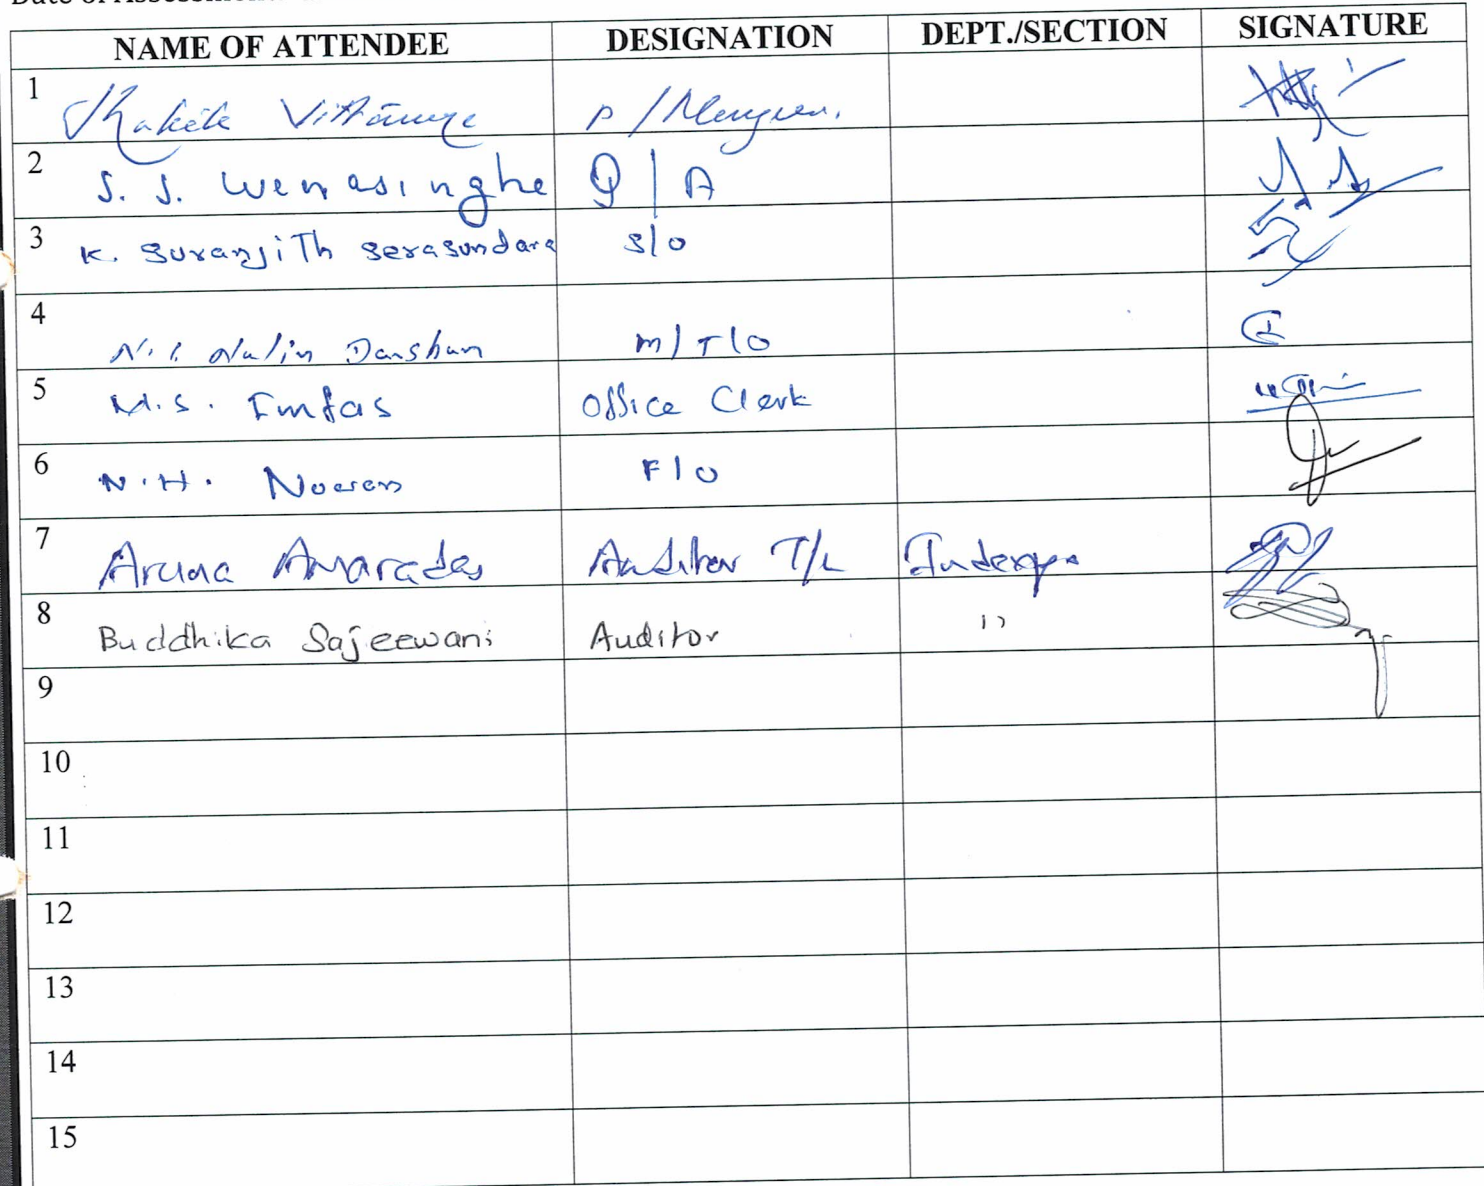 NAME OF ATTENDEE DESIGNATION DEPT./SECTION SIGNATURE
1
2 S. S. Wenasinghe Q | A
3 K. Suranjith Serasundara S/O
4 Nalin Darshan M/T/O
5 M.S. Imfas Office Clerk
6 N.H. F/O
7 Aruna Amarades Auditor T/L
8 Buddhika Sajeewani Auditor "
9
10
11
12
13
14
15